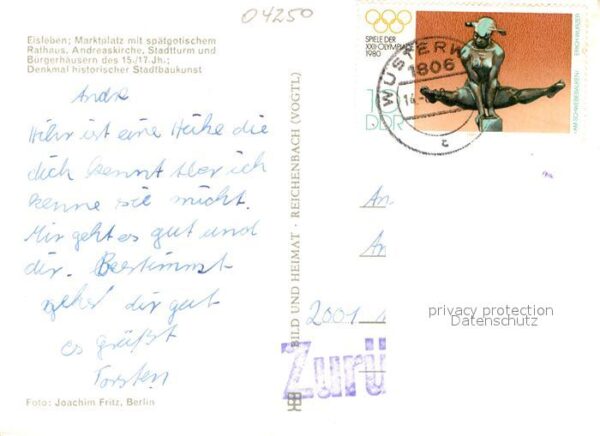 04250
Eisleben; Marktplatz mit spätgotischem
Rathaus, Andreaskirche, Stadtturm und
Bürgerhäusern des 15./17. Jh.;
Denkmal historischer Stadtbaukunst
André
ist eine Heike die
dich kennt aber ich
kenne sie nicht.
Mir geht es gut und
dir. Bestimmt
geht dir gut
es grüßt
Torsten
Foto: Joachim Fritz, Berlin
BILD UND HEIMAT · REICHENBACH (VOGTL)
SPIELE DER
XXII. OLYMPIADE
1980
DDR
„AM SCHWEBEBALKEN“
ERICH WURZER
WUSTERH
1806
a
An
An
2001
Zurü
privacy protection
Datenschutz